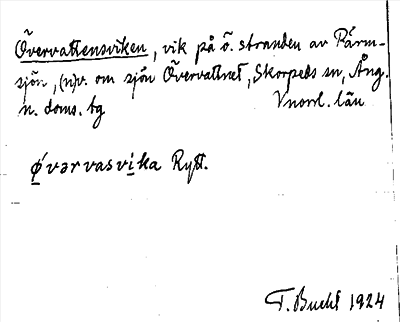 Övervattensviken, vik på ö. stranden av Pärm-
sjön, (n)v. om sjön Övervattnet, Skorpeds sn, Ång.
n. doms. tg Vnorrl. län
øvərvasvika
T. Bucht 1924